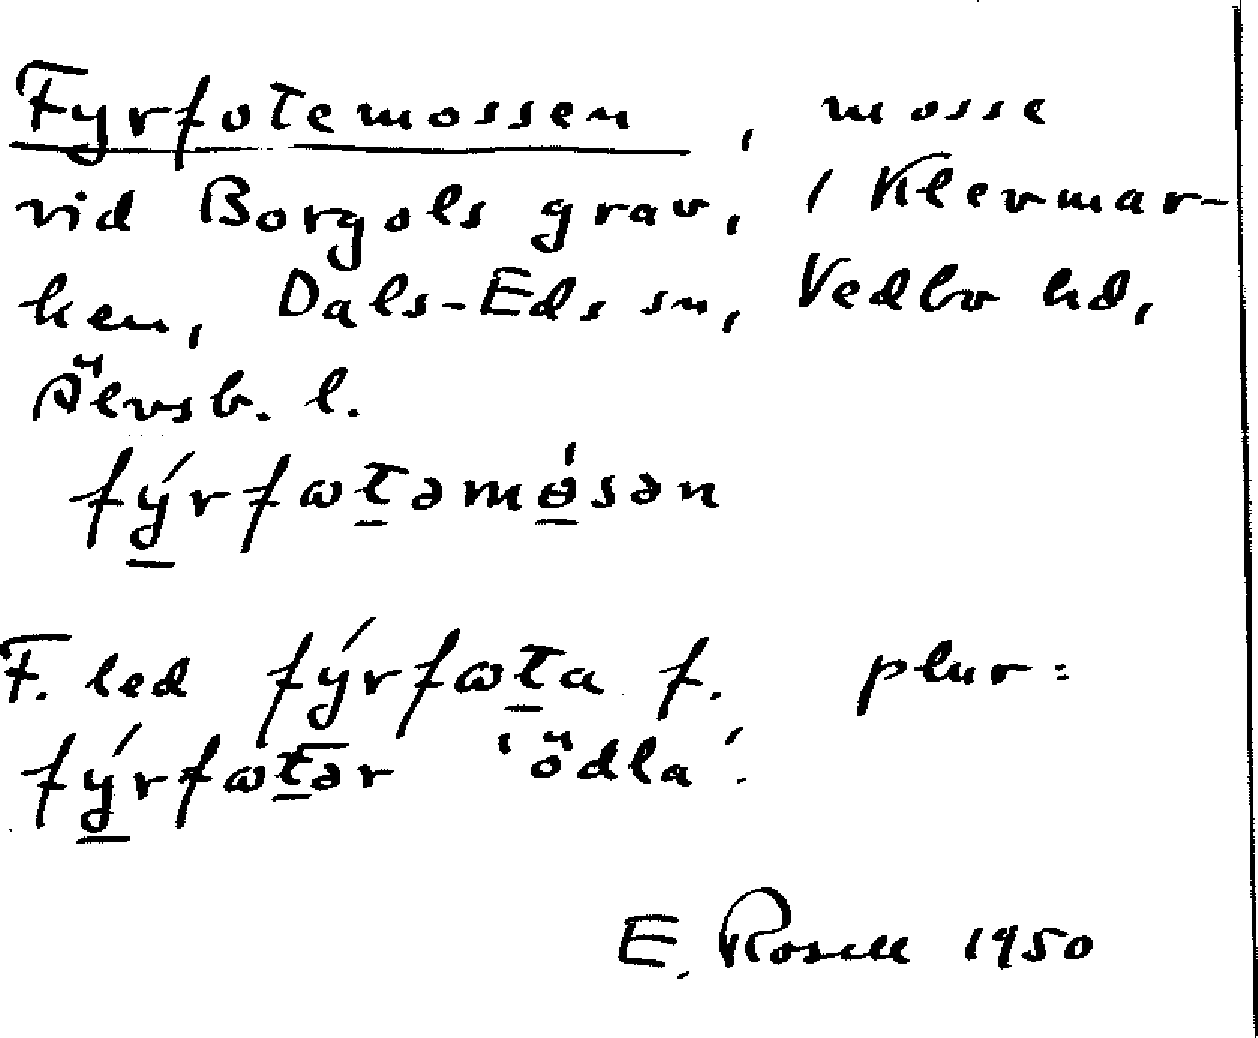 Fyrfotemossen, mosse
vid Borgols grav, i Klevmar-
ken, Dals-Eds sn, Vedbo hd,
Älvsb. l.
fý̲rfωt̲əmɵ̲́sən
F. led fýrfωt̲a f. plur:
fý̲rfωt̲ər 'ödla'.
E. Rosell 1950